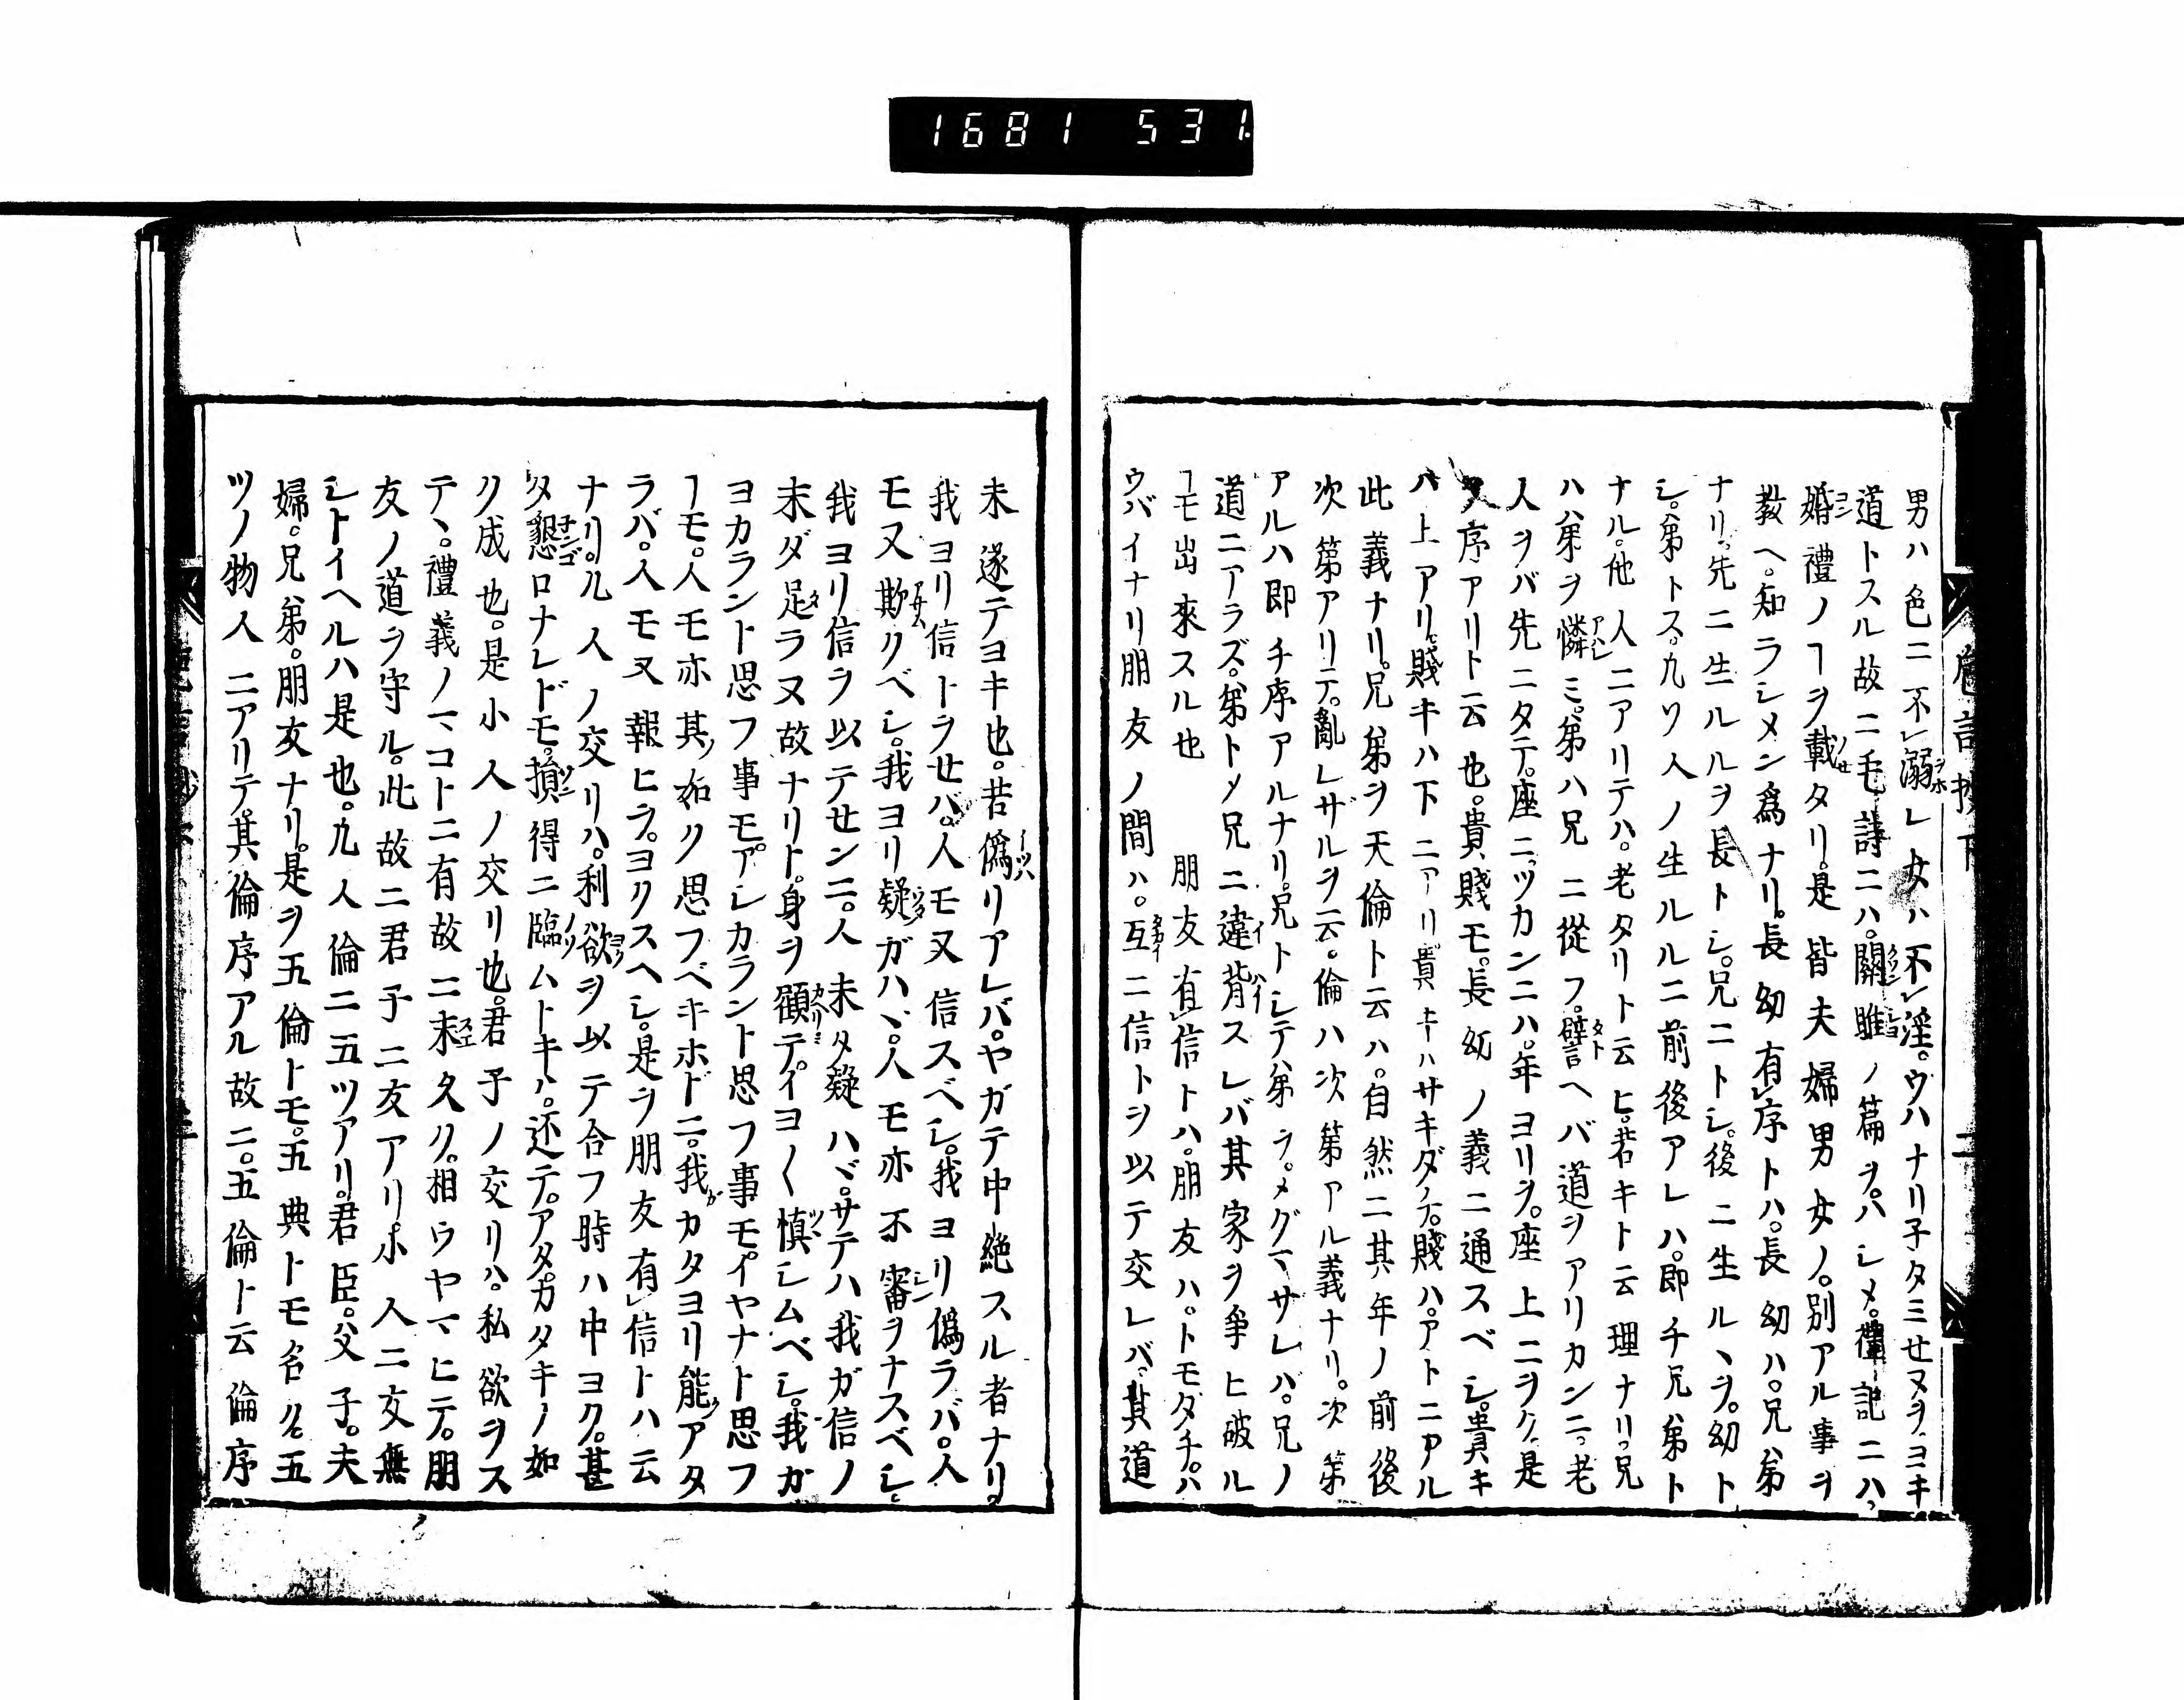 1681 531
男ハ色ニ不レ溺レ女ハ不レ淫。ウハナリ子タミセヌヲ。ヨキ
道トスル故ニ毛詩ニハ。關雎ノ篇ヲ。ハシメ。禮記ニハ。
婚禮ノヿヲ載タリ。是皆夫婦男女ノ。別アル事ヲ
教ヘ。知ラシメン爲ナリ。長幼有レ序トハ。長幼ハ。兄弟
ナリ。先ニ生ルルヲ長トシ。兄ニトシ。後ニ生ルヽヲ。幼ト
シ。弟トス。九ソ人ノ生ルルニ前後アレハ。即チ兄弟ト
ナル。他人ニアリテハ。老タリト云ヒ。若キト云理ナリ。兄
ハハ弟ヲ憐ミ。弟ハ兄ニ從フ。譬ヘバ道ヲアリカンニ。老
人ヲバ先ニタテ。座ニツカンニハ。年ヨリヲ。座上ニヲク。是
又序アリト云也。貴賤モ。長幼ノ義ニ通スベシ。貴キ
ハ上アリ。賤キハ下ニアリ。貴キハサキダテ。賤ハ。アトニアル
此義ナリ。兄弟ヲ天倫ト云ハ。自然ニ其年ノ前後
次第アリテ。亂レザルヲ云。倫ハ次第アル義ナリ。次第
アルハ即チ序アルナリ。兄トシテ弟ヲ。メグマサレバ。兄ノ
道ニアラズ。弟トメ兄ニ違背スレバ其家ヲ爭ヒ破ル
ヿモ出來スル也 朋友有レ信トハ。朋友ハ。トモダチ。ハ
ウバイナリ朋友ノ間ハ。互ニ信トヲ以テ交レバ。其道
未遂テヨキ也。若僞リアレバ。ヤガテ中絶スル者ナリ。
我ヨリ信トヲせバ。人モ又信スベシ。我ヨリ僞ラバ。人
モ又欺クベシ。我ヨリ疑ガハヽ。人モ亦不審ヲナスベシ。
我ヨリ信ヲ以テせンニ。人未タ疑ハヾ。サテハ我ガ信ノ
末ダ足ラヌ故ナリト。身ヲ顧テ。イヨ〱愼シムベシ。我ガ
ヨカラント思フ事モ。アレカラント思フ事モ。イヤナト思フ
ヿモ。人モ亦其ノ如ク思フベキホドニ。我ガカタヨリ能アタ
ラバ。人モ又報ヒヲ。ヨクスヘシ。是ヲ朋友有レ信トハ云
ナリ。凡人ノ交リハ。利欲ヲ以テ合フ時ハ中ヨク。甚
タ懇ロナレドモ。損得ニ臨ムトキハ。还テ。アタ。カタキノ如
ク成也。是小人ノ交リ也。君子ノ交リハ。私欲ヲス
テヽ。禮義ノマコトニ有故ニ末久ク。相ウヤマヒテ。朋
友ノ道ヲ守ル。此故ニ君子ニ友アリ小人ニ友無
シトイヘルハ是也。凡人倫ニ五ツアリ。君臣。父子。夫
婦。兄弟。朋友ナリ。是ヲ五倫トモ。五典トモ名ク。五
ツノ物人ニアリテ。其倫序アル故ニ。五倫ト云倫序